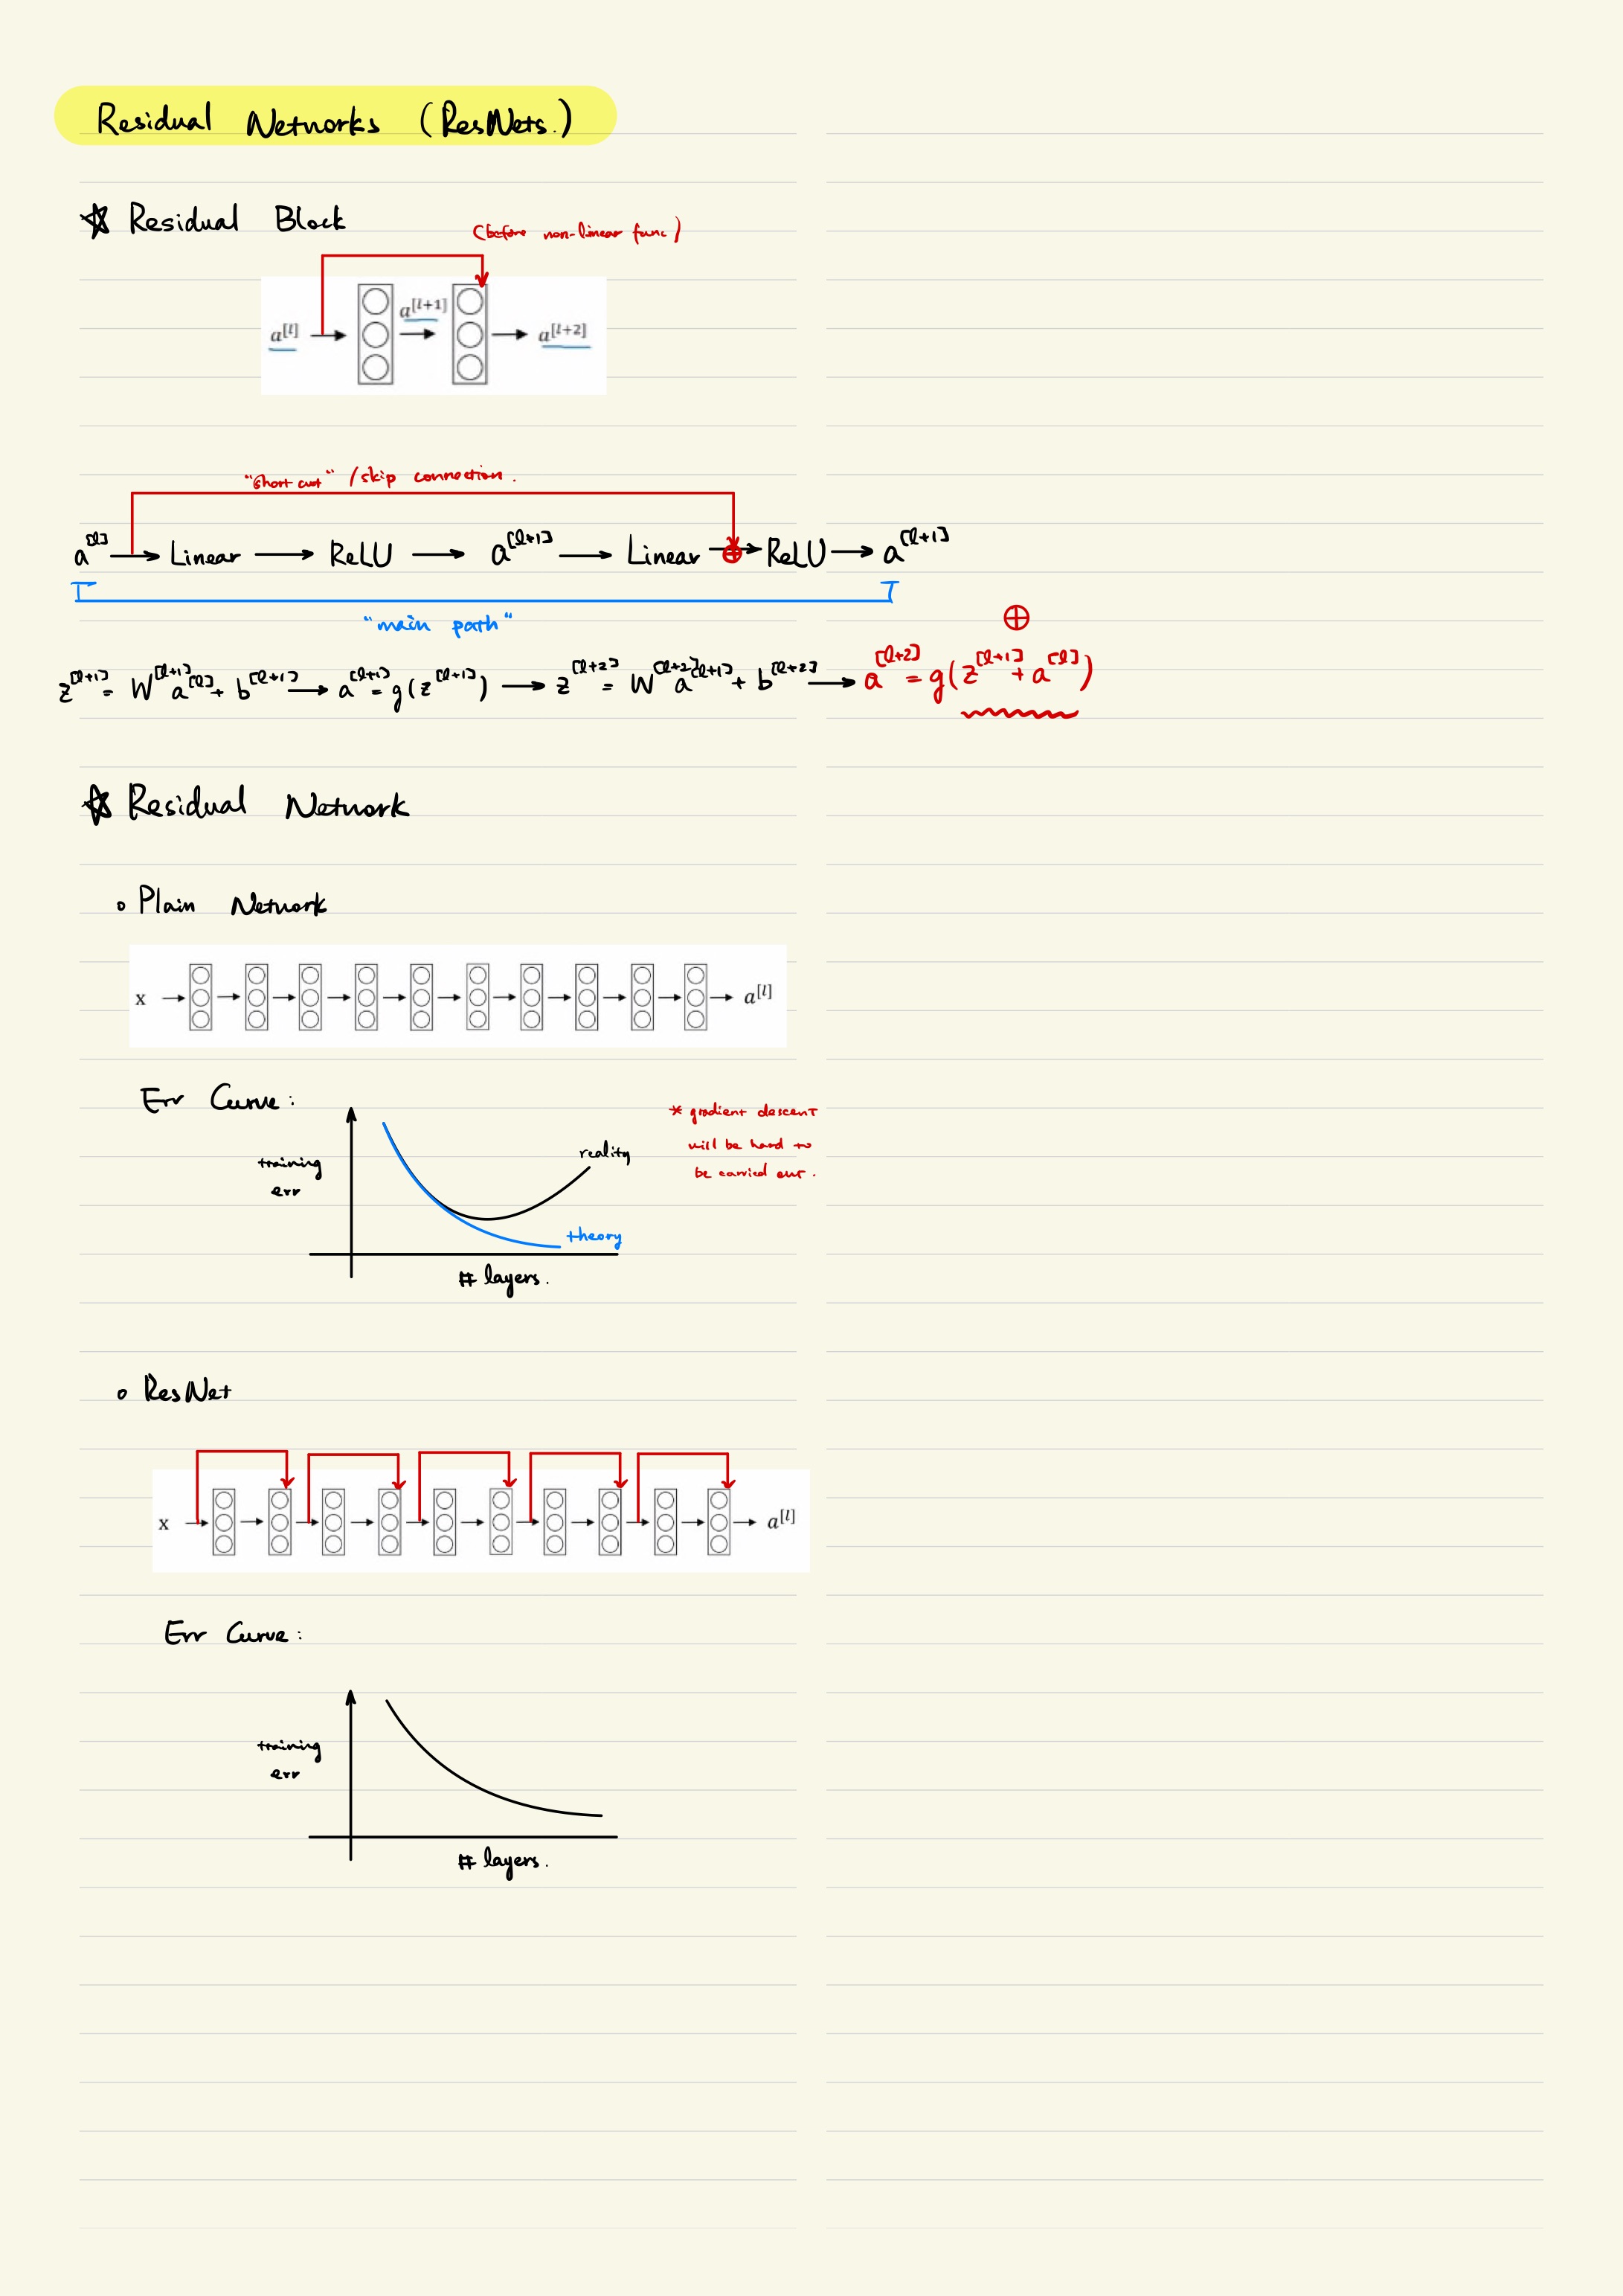 Residual Networks (ResNets.)
☆ Residual Block
(before non-linear func)
a^[l] → a^[l+1] → a^[l+2]
"Short cut" / skip connection.
a^[l] → Linear → ReLU → a^[l+1] → Linear ⊕→ ReLU → a^[l+1]
"main path"
⊕
z^[l+1] = W^[l+1] a^[l] + b^[l+1] → a^[l+1] = g(z^[l+1]) → z^[l+2] = W^[l+2] a^[l+1] + b^[l+2] → a^[l+2] = g(z^[l+1] + a^[l])
☆ Residual Network
o Plain Network
x → a^[l]
Err Curve:
* gradient descent
will be hard to
be carried out.
training
err
reality
theory
# layers.
o ResNet
x → a^[l]
Err Curve:
training
err
# layers.